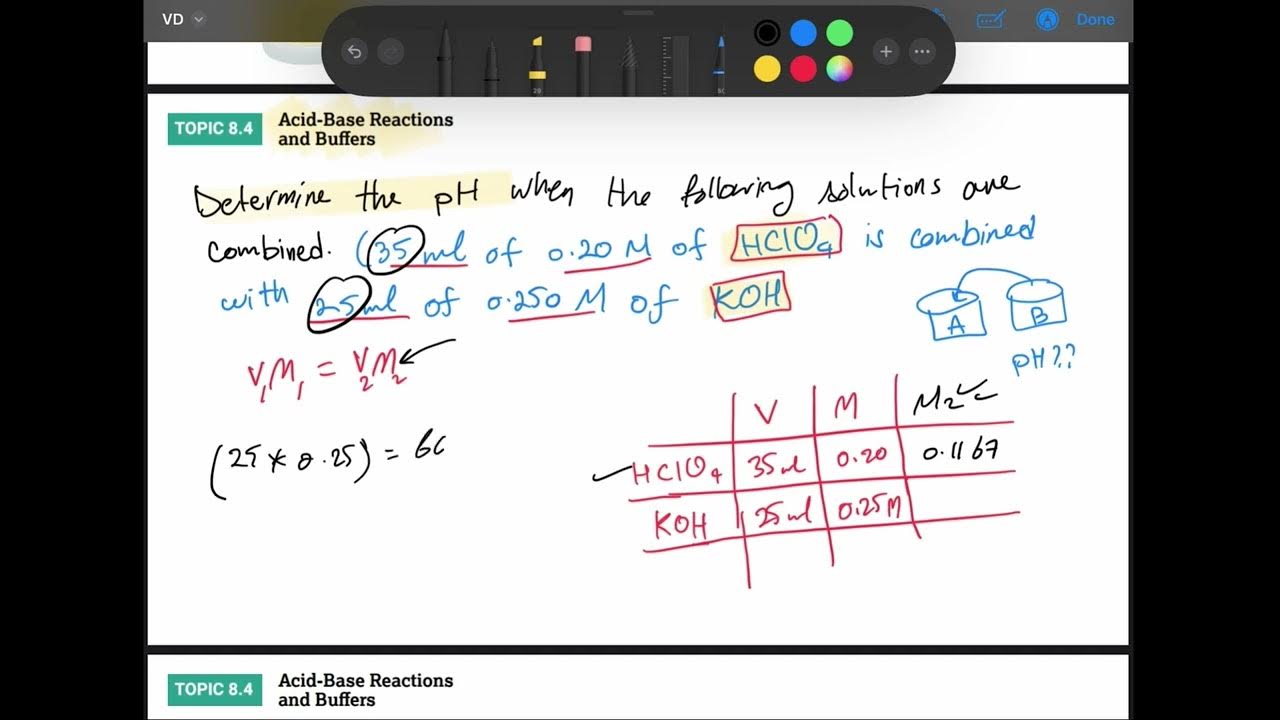 VD
Done
29
50
TOPIC 8.4
Acid-Base Reactions
and Buffers
Determine the pH when the following solutions are
combined. (35 ml of 0.20 M of HClO4 is combined
with 25 ml of 0.250 M of KOH
A B
pH??
V1M1 = V2M2
(25 * 0.25) = 60
V M M2
HClO4 35ml 0.20 0.1167
KOH 25ml 0.25M
TOPIC 8.4
Acid-Base Reactions
and Buffers